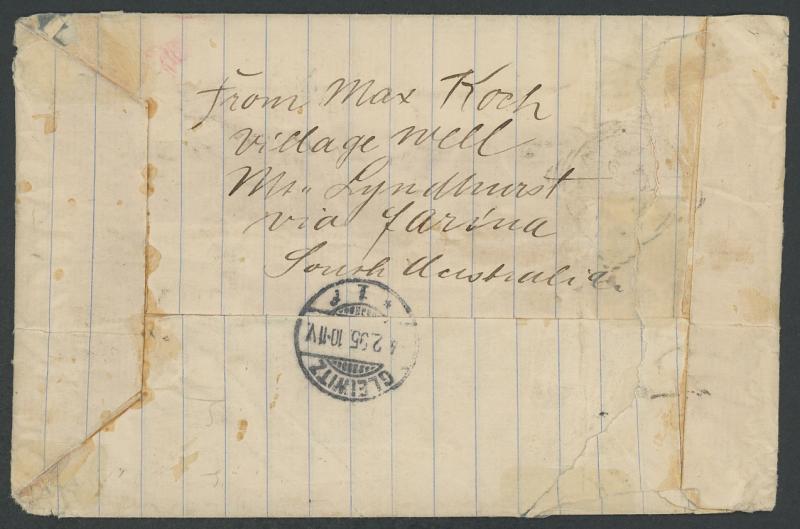 From Max Koch
Village Well
Mt. Lyndhurst
via Farina
South Australia
GLEIWITZ
4.2.95.10-11V.
* 1 f